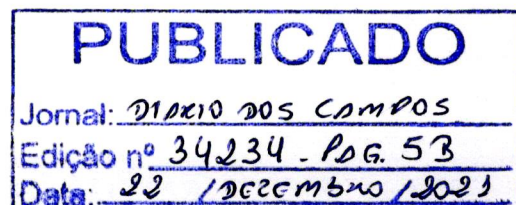 PUBLICADO
Jornal: DIARIO DOS CAMPOS
Edição nº 34234 - PAG. 5B
Data: 22 / DEZEMBRO / 2021